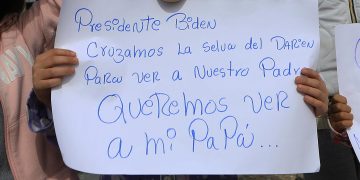 Presidente Biden
Cruzamos La selva del Darien
Para ver a Nuestro Padre
Queremos ver
a mi PaPá...